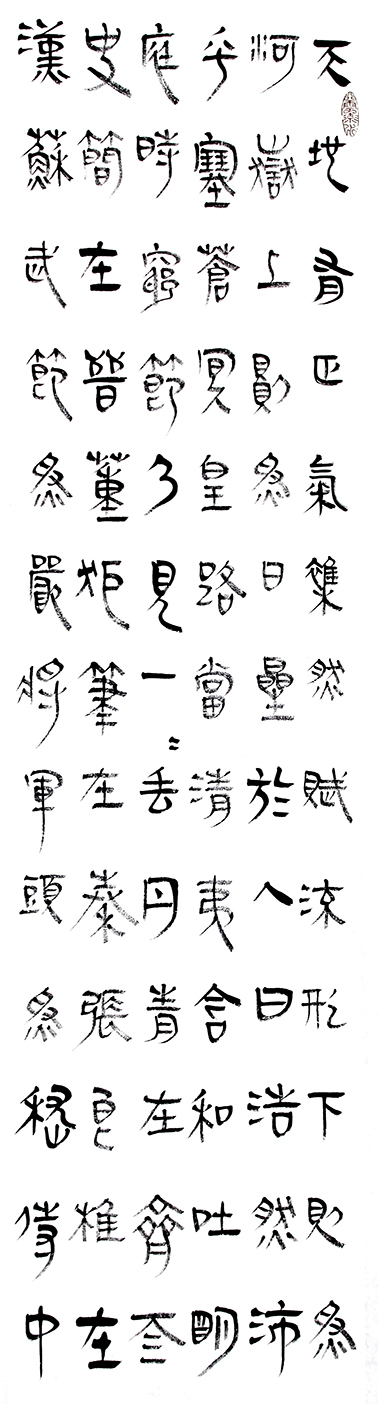 天地有正氣雜然賦流形下則為
河嶽上則為日星於人曰浩然沛
乎塞蒼冥皇路當清夷含和吐明
庭時窮節乃見一〻垂丹青在齊太
史簡在晉董狐筆在秦張良椎在
漢蘇武節為嚴將軍頭為嵇侍中